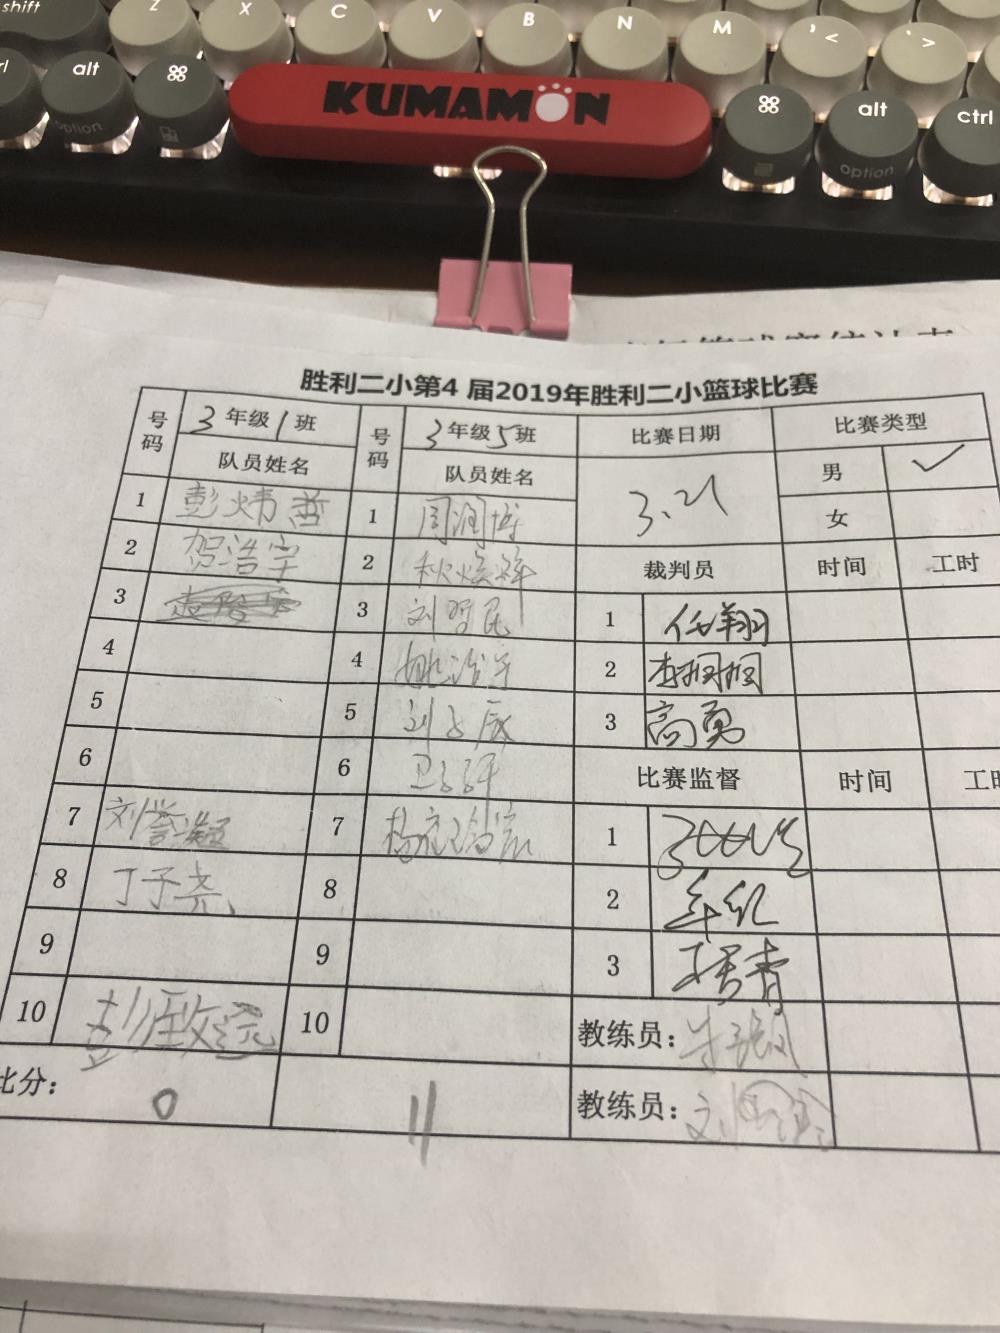 shift Z X C V B N M , < . >
alt ⌘ KUMAMON ⌘ alt ctrl
option option
胜利二小第4 届2019年胜利二小篮球比赛
号码 3年级1班 号码 3年级5班 比赛日期 比赛类型
队员姓名 队员姓名 3.21 男 ✓
1 彭炜哲 1 周润博 女
2 贺浩宇 2 裁判员 时间 工时
3 3 刘哲民 1 任翔
4 4 姚浩宇 2 李栩栩
5 5 刘子辰 3 高勇
6 6 比赛监督 时间 工时
7 刘誉凝 7 1
8 丁子尧 8 2
9 9 3
10 10 教练员：
比分： 0 11 教练员：